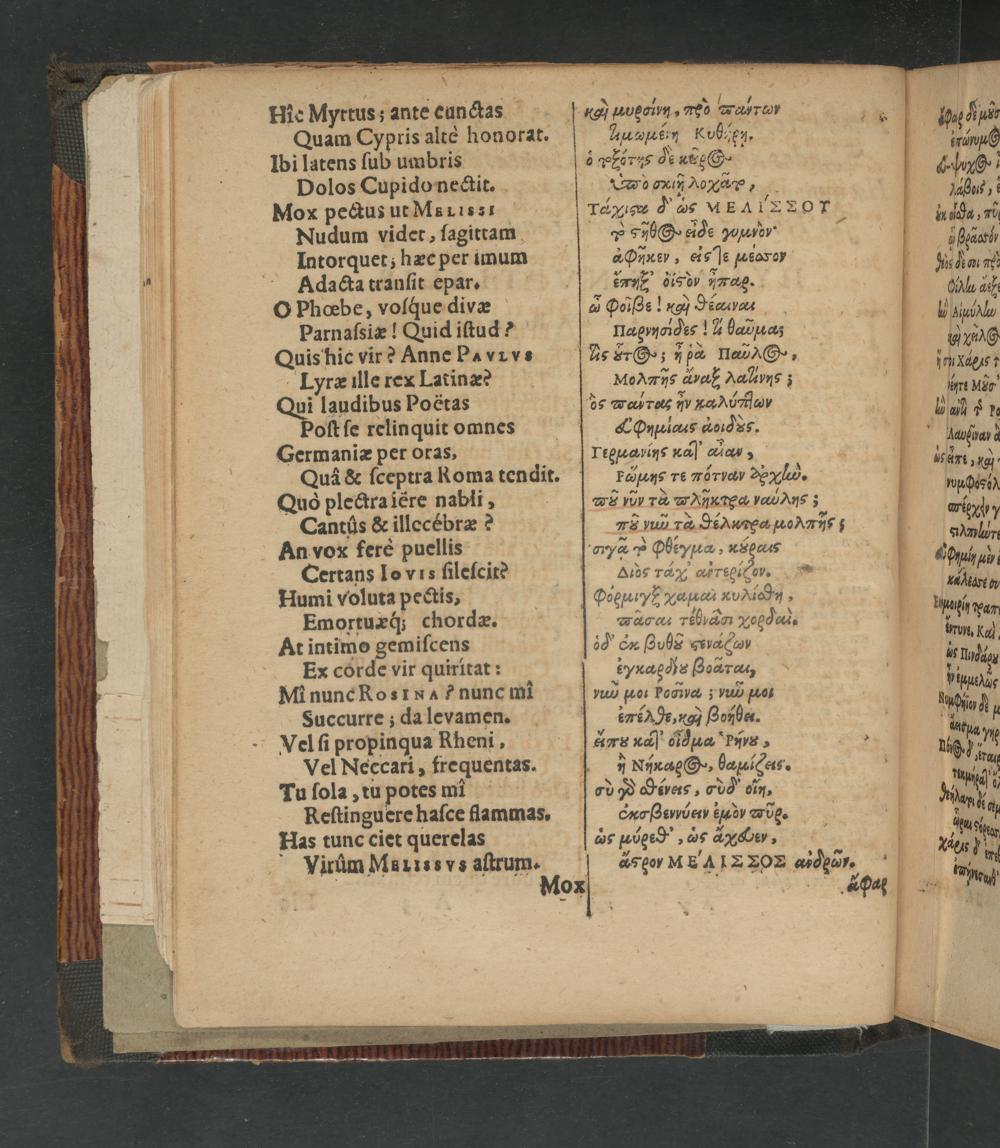 Hîc Myrtus; ante cunctas
Quam Cypris altè honorat.
Ibi latens sub umbris
Dolos Cupido nectit.
Mox pectus ut MELISSI
Nudum videt, sagittam
Intorquet; hæc per imum
Adacta transit epar.
O Phœbe, vosque divæ
Parnassiæ! Quid istud?
Quis hic vir? Anne PAVLVS
Lyræ ille rex Latinæ?
Qui laudibus Poëtas
Post se relinquit omnes
Germaniæ per oras,
Quâ & sceptra Roma tendit.
Quò plectra iêre nabli,
Cantûs & illecébræ?
An vox ferè puellis
Certans IOVIS silescit?
Humi voluta pectis,
Emortuæq́; chordæ.
At intimo gemiscens
Ex corde vir quirítat:
Mî nunc ROSINA? nunc mî
Succurre; da levamen.
Vel si propinqua Rheni,
Vel Neccari, frequentas.
Tu sola, tu potes mî
Restinguere hasce flammas.
Has tunc ciet querelas
Virûm MELISSVS astrum.
Mox
καὶ μυρσίνη, πρὸ πάντων
τιμωμένη Κυθήρῃ.
ὁ τοξότης δὲ κῦρος
ὑπὸ σκιῇ λοχᾶται,
Τάχιστα δ' ὡς ΜΕΛΙΣΣΟΥ
τὸ στῆθος εἶδε γυμνὸν·
ἀφῆκεν, εἴς τε μέσσον
ἔπηξ' ὀϊστὸν ἧπαρ.
ὦ Φοῖβε! καὶ θέαιναι
Παρνησίδες! τί θαῦμα;
τίς οὗτος; ἦ ῥὰ Παῦλος,
Μολπῆς ἄναξ λατίνης;
ὃς πάντας ἦν καλύπτων
εὐφημίαις ἀοιδοὺς.
Γερμανίης κατ' αἶαν,
Ρώμης τε πότναν ἀρχὴν.
ποῦ νῦν τὰ πλῆκτρα ναύλης;
ποῦ νῦν τὰ θέλκτρα μολπῆς;
σιγᾷ τὸ φθέγμα, κούραις
Διὸς τάχ' ἀντερίζον.
Φόρμιγξ χαμαὶ κυλίσθη,
πᾶσαι τέθνᾶσι χορδαὶ.
ὁδ' ἐκ βυθοῦ στενάζων
ἐγκαρδίου βοᾶται,
νῦν μοι Ροσῖνα; νῦν μοι
ἐπέλθε, καὶ βοήθει.
εἴπου κατ' οἶδμα Ῥήνου,
ἢ Νήκαρος, θαμίζεις.
σὺ γὸ σθένεις, σὺδ' οἴη,
ἐκσβεννύειν ἐμὸν πῦρ.
ὡς μύρεθ', ὡς ἄχευεν,
ἄστρον ΜΕΛΙΣΣΟΣ ἀνδρῶν.
ἄφαρ